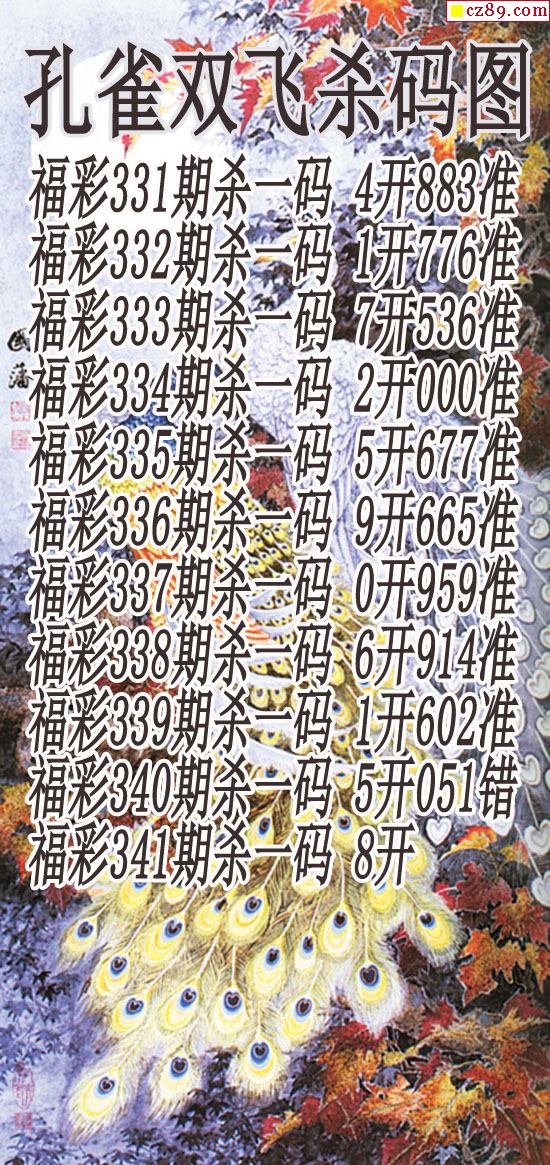 cz89.com
孔雀双飞杀码图
福彩331期杀一码 4开883准
福彩332期杀一码 1开776准
福彩333期杀一码 7开536准
福彩334期杀一码 2开000准
福彩335期杀一码 5开677准
福彩336期杀一码 9开665准
福彩337期杀一码 0开959准
福彩338期杀一码 6开914准
福彩339期杀一码 1开602准
福彩340期杀一码 5开051错
福彩341期杀一码 8开